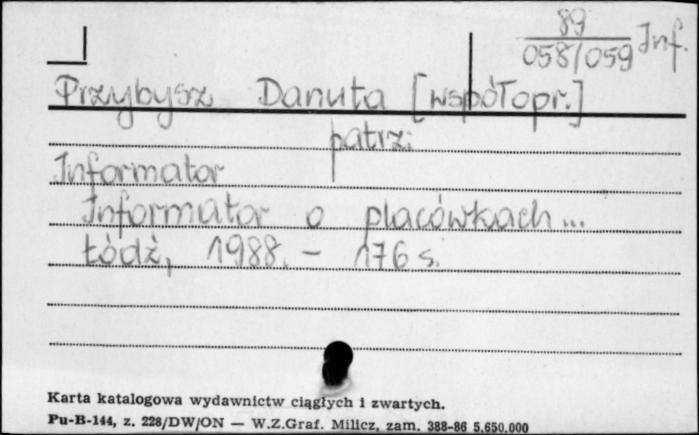 89
058/059 Inf.
Przybysz Danuta [współopr.]
patrz:
Informator
Informator o placówkach...
Łódź, 1988. - 176 s.
Karta katalogowa wydawnictw ciągłych i zwartych.
Pu-B-144, z. 228/DW/ON — W.Z.Graf. Milicz, zam. 388-86 5.650.000